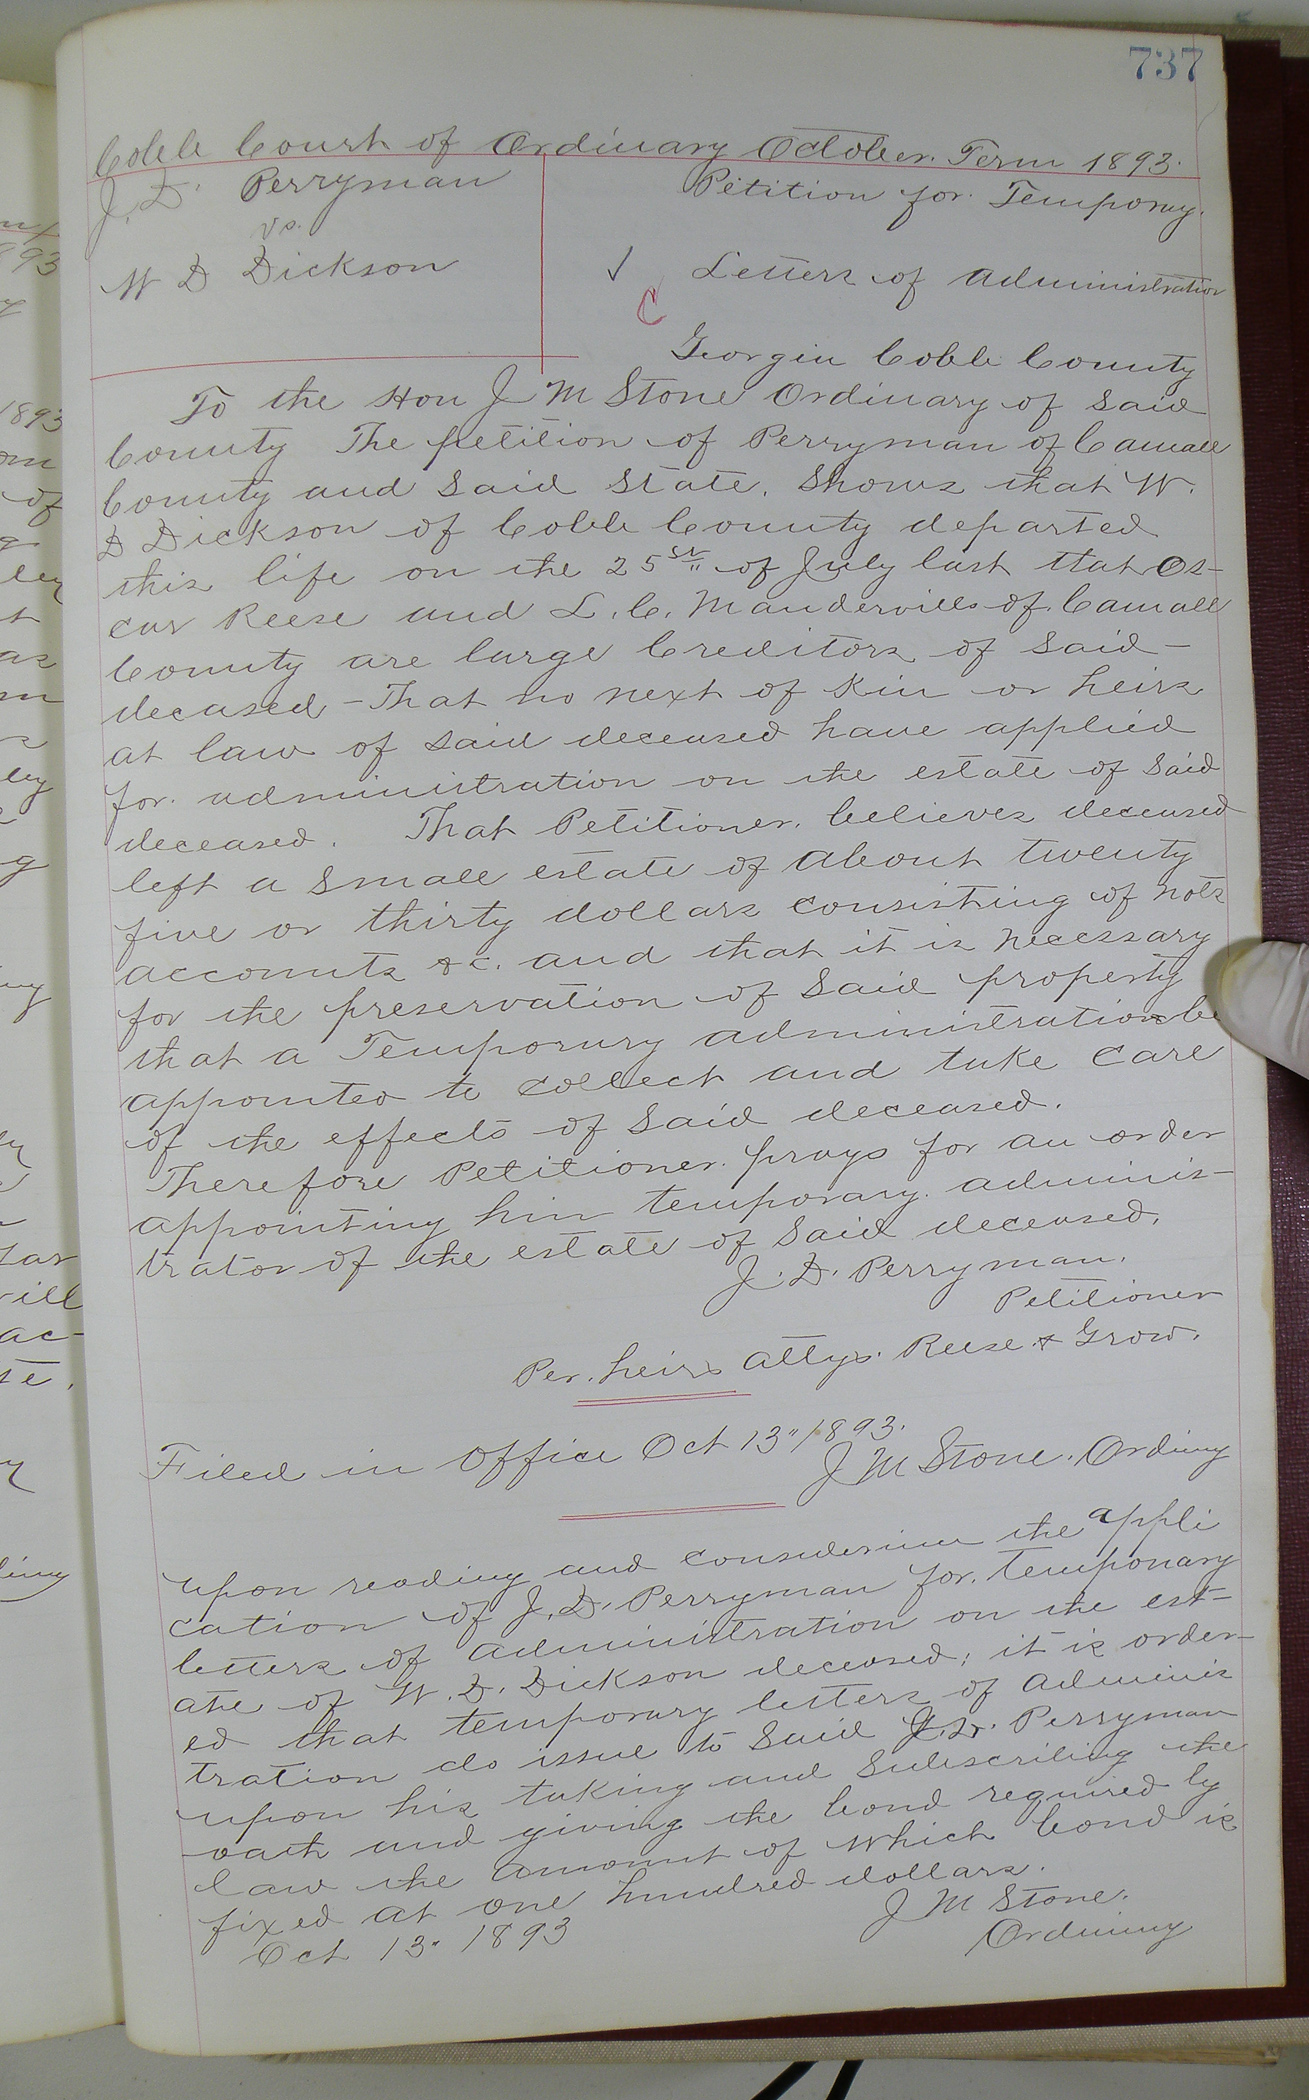 737
Cobb Court of Ordinary October Term 1893.
J. D. Perryman
vs.
W D Dickson
Petition for Temporary
Letters of administration
Georgia Cobb County
To the Hon J M Stone Ordinary of said
County The petition of Perryman of Carroll
County and said State. Shows that W.
D Dickson of Cobb County departed
this life on the 25st" of July last that Os-
car Reese and L. C. Mandervills of Carroll
County are large Creditors of said -
decased - That no next of kin or heirs
at law of said deceased have applied
for administration on the estate of said
deceased. That Petitioner believes deceased
left a small estate of about twenty
five or thirty dollars consisting of nots
accounts &c. and that it is necessary
for the preservation of said property
that a Temporary administration be
appointed to collect and take care
of the effects of said deceased.
Therefore Petitioner prays for an order
appointing him temporary adminis-
trator of the estate of said deceased.
J. D. Perryman.
Petitioner
Per. heirs attys. Reese & Grow.
Filed in office Oct 13" 1893.
J M Stone. Ordinary
upon reading and considerinn the appli
cation of J. D. Perryman for temporary
letters of administration on the est-
ate of W. D. Dickson deceased; it is order-
ed that temporary letters of adminis
tration do issue to said J. D. Perryman
upon his taking and subscribing the
oath and giving the bond required by
law the amount of which bond is
fixed at one hundred dollars.
Oct 13" 1893
J M Stone.
Ordinary